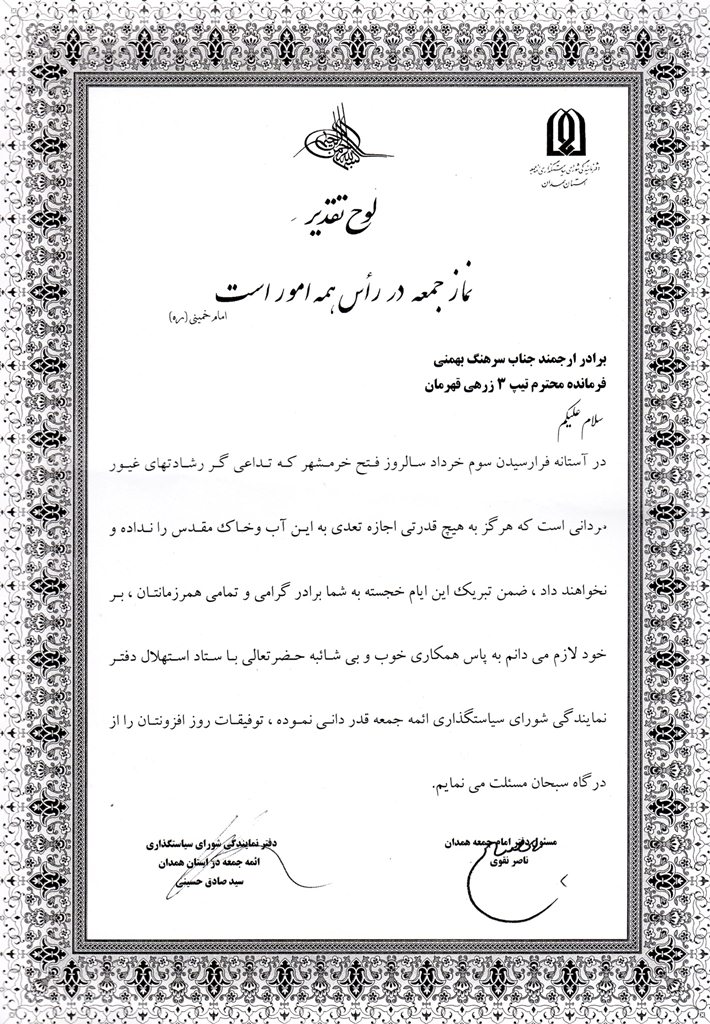 استان همدان
لوح تقدیر
نماز جمعه در رأس همه امور است
امام خمینی (ره)
برادر ارجمند جناب سرهنگ بهمنی
فرمانده محترم تیپ ۳ زرهی قهرمان
سلام علیکم
در آستانه فرارسیدن سوم خرداد سالروز فتح خرمشهر که تداعی گر رشادتهای غیور
مردانی است که هرگز به هیچ قدرتی اجازه تعدی به این آب وخاک مقدس را نداده و
نخواهند داد ، ضمن تبریک این ایام خجسته به شما برادر گرامی و تمامی همرزمانتان ، بر
خود لازم می دانم به پاس همکاری خوب و بی شائبه حضرتعالی با ستاد استهلال دفتر
نمایندگی شورای سیاستگذاری ائمه جمعه قدر دانی نموده ، توفیقات روز افزونتان را از
درگاه سبحان مسئلت می نمایم.
مسئول دفتر امام جمعه همدان
ناصر نقوی
دفتر نمایندگی شورای سیاستگذاری
ائمه جمعه در استان همدان
سید صادق حسینی